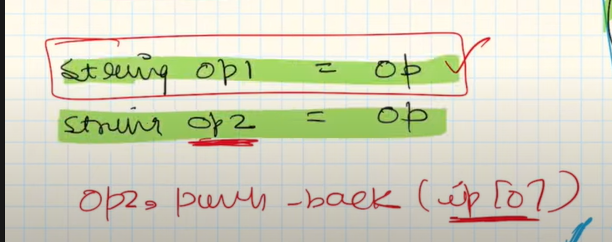 string op1 = op
string op2 = op
op2. push-back (ip[0])